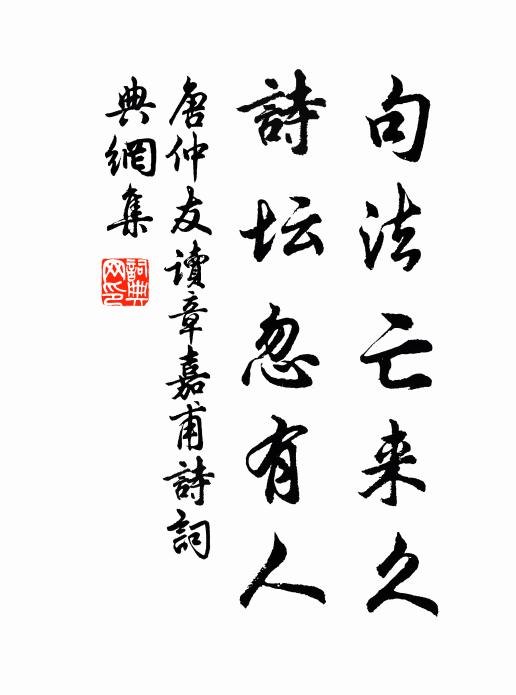 句法亡来久
詩坛忽有人
唐仲友讀章嘉甫詩詞
典網集
詞典网印